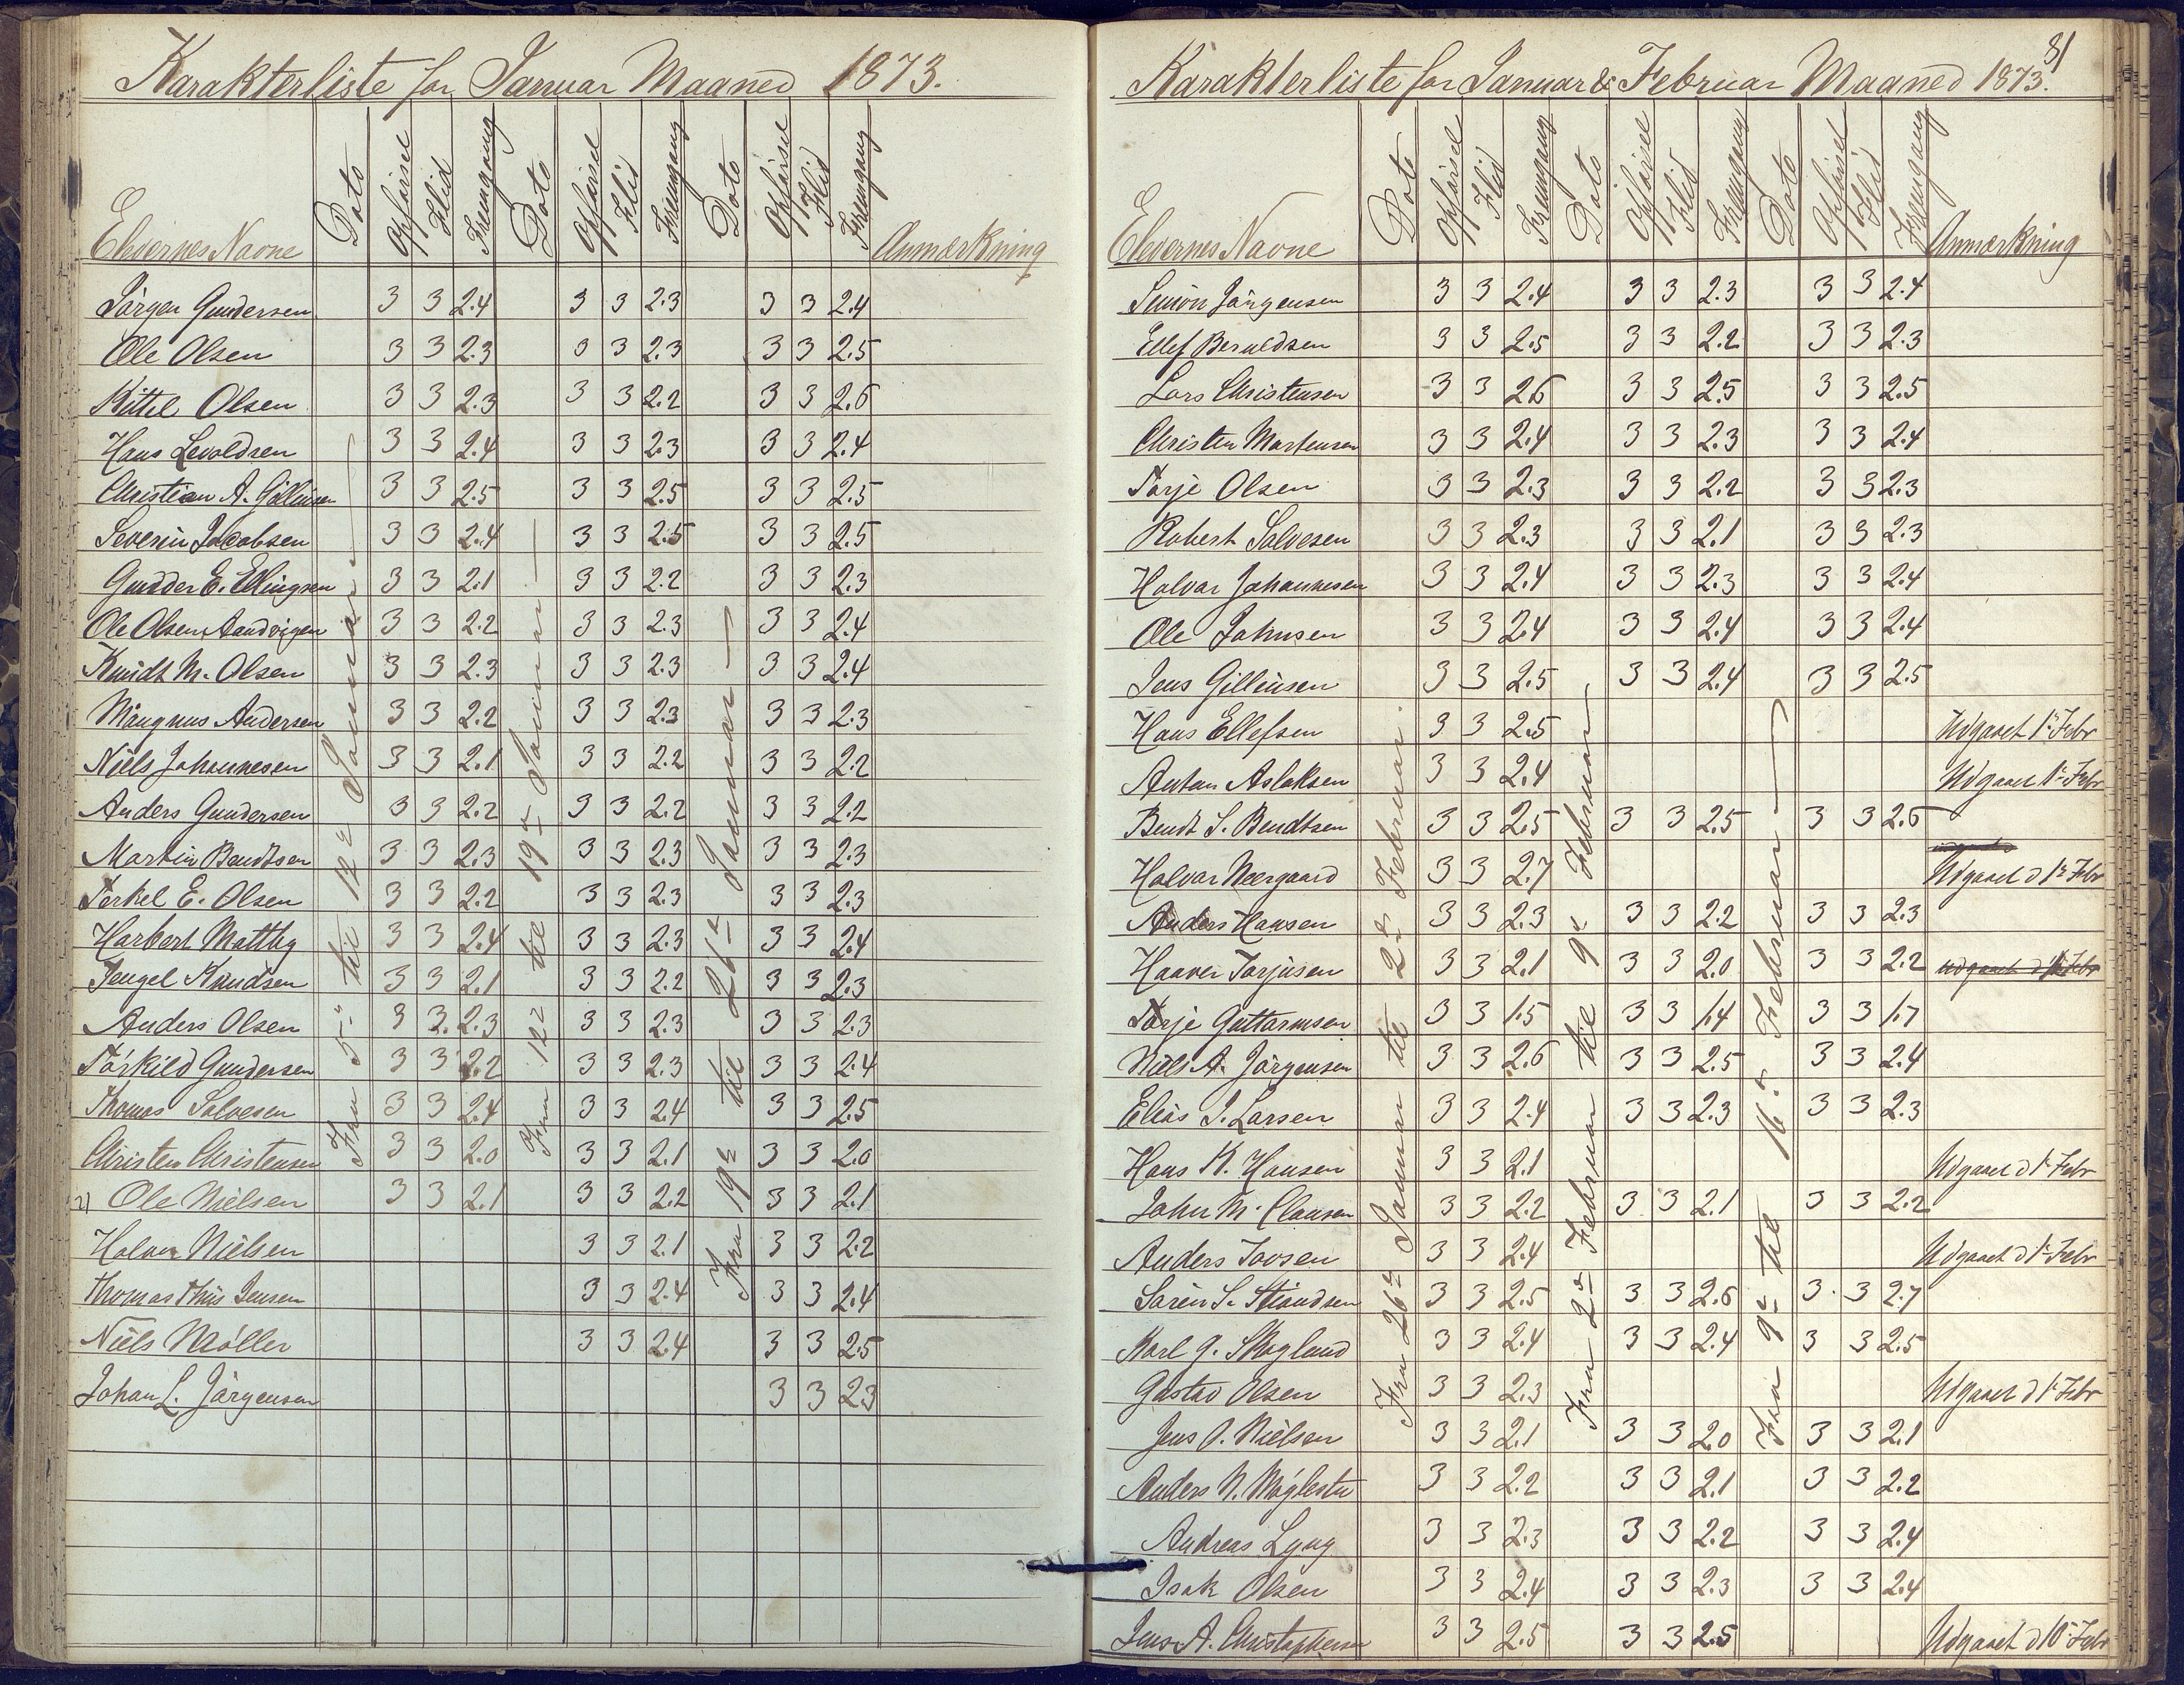 Karakterliste for Januar Maaned 1873.
Elevernes Navne Dato Opførsel Flid Fremgang Dato Opførsel Flid Fremgang Dato Opførsel Flid Fremgang Anmærkning
Fra 5te til 12te Januar
Fra 12te til 19de Januar
Fra 19de til 26de Januar
Jörgen Gundersen 3 3 2.4 3 3 2.3 3 3 2.4
Ole Olsen 3 3 2.3 3 3 2.3 3 3 2.5
Kittel Olsen 3 3 2.3 3 3 2.2 3 3 2.6
Hans Levoldsen 3 3 2.4 3 3 2.3 3 3 2.4
Christian A. 3 3 2.5 3 3 2.5 3 3 2.5
Severin Jacobsen 3 3 2.4 3 3 2.5 3 3 2.5
Gudder E. Ellingsen 3 3 2.1 3 3 2.2 3 3 2.3
Ole Olsen Aandvigen 3 3 2.2 3 3 2.3 3 3 2.4
Knudt M. Olsen 3 3 2.3 3 3 2.3 3 3 2.4
Mangnus Andersen 3 3 2.2 3 3 2.3 3 3 2.3
Niels Johannesen 3 3 2.1 3 3 2.2 3 3 2.2
Anders Gundersen 3 3 2.2 3 3 2.2 3 3 2.2
Martin Bendtsen 3 3 2.3 3 3 2.3 3 3 2.3
Terkel E. Olsen 3 3 2.2 3 3 2.3 3 3 2.3
Harbert Mattby 3 3 2.4 3 3 2.3 3 3 2.4
Tengel Knudsen 3 3 2.1 3 3 2.2 3 3 2.3
Anders Olsen 3 3. 2.3 3 3 2.3 3 3 2.3
Törkild Gundersen 3 3 2.2 3 3 2.3 3 3 2.4
Thomas Salvesen 3 3 2.4 3 3 2.4 3 3 2.5
Christen Christensen 3 3 2.0 3 3 2.1 3 3 2.0
21 Ole Nielsen 3 3 2.1 3 3 2.2 3 3 2.1
Halvor Nielsen 3 3 2.1 3 3 2.2
Thomas Thiis Jensen 3 3 2.4 3 3 2.4
Niels Møller 3 3 2.4 3 3 2.5
Johan L. Jörgensen 3 3 2.3
81
Karakterliste for Januar & Februar Maaned 1873.
Elevernes Navne Dato Opførsel Flid Fremgang Dato Opførsel Flid Fremgang Dato Opførsel Flid Fremgang Anmærkning
Fra 26de Januar til 2den Februar.
Fra 2den Februar til 9de Februar
Fra 9de til 16de Februar
Simon Jörgensen 3 3 2.4 3 3 2.3 3 3 2.4
Ellef Beruldsen 3 3 2.5 3 3 2.2 3 3 2.3
Lars Christensen 3 3 2.6 3 3 2.5 3 3 2.5
Christen Mortensen 3 3 2.4 3 3 2.3 3 3 2.4
Tarje Olsen 3 3 2.3 3 3 2.2 3 3 2.3
Robert Salvesen 3 3 2.3 3 3 2.1 3 3 2.3
Halvar Johannesen 3 3 2.4 3 3 2.3 3 3 2.4
Ole Johnsen 3 3 2.4 3 3 2.4 3 3 2.4
Jens Gilleusen 3 3 2.5 3 3 2.4 3 3 2.5
Hans Ellefsen 3 3 2.5 Udgaaet 1ste Febr
Anton Aslaksen 3 3 2.4 Udgaaet 1ste Febr
Bendt S. Bendtsen 3 3 2.5 3 3 2.5 3 3 2.6
Halvar Neergaard 3 3 2.7 Udgaaet d 1ste Febr
Anders Hansen 3 3 2.3 3 3 2.2 3 3 2.3
Haaver Torjusen 3 3 2.1 3 3 2.0 3 3 2.2 Udgaaet d 1ste Febr
Torje Guttarmsen 3 3 1.5 3 3 1.4 3 3 1.7
Niels A. Jörgensen 3 3 2.6 3 3 2.5 3 3 2.4
Elias J. Larsen 3 3 2.4 3 3 2.3 3 3 2.3
Hans K. Hansen 3 3 2.1 Udgaaet d 1ste Febr
John M. Clausen 3 3 2.2 3 3 2.1 3 3 2.2
Anders Tovsen 3 3 2.4 Udgaaet d 1ste Febr
Sören S. 3 3 2.5 3 3 2.6 3. 3 2.7
Karl G. Skoglund 3 3 2.4 3 3 2.4 3 3 2.5
Gustav Olsen 3 3 2.3 Udgaaet d 1ste Febr
Jens O. Nielsen 3 3 2.1 3 3 2.0 3 3 2.1
Anders N. Møglestu 3 3 2.2 3 3 2.1 3 3 2.2
Andreas Lyng 3 3 2.3 3 3 2.2 3 3 2.4
Isak Olsen 3 3 2.4 3 3 2.3 3 3 2.4
Jens A. Christophersen 3 3 2.5 3 3 2.5 Udgaaet d 10de Febr